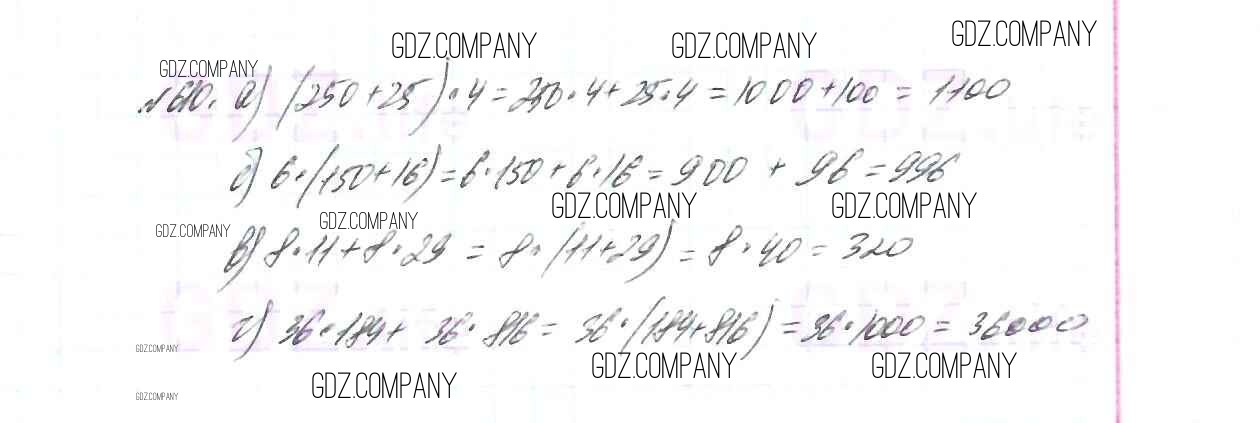 GDZ.COMPANY GDZ.COMPANY GDZ.COMPANY
GDZ.COMPANY
№610. а) (250+25)·4=250·4+25·4=1000+100=1100
б) 6·(150+16)=6·150+6·16=900+96=996
GDZ.COMPANY GDZ.COMPANY
GDZ.COMPANY GDZ.COMPANY
в) 8·11+8·29=8·(11+29)=8·40=320
г) 36·184+36·816=36·(184+816)=36·1000=36000
GDZ.COMPANY
GDZ.COMPANY GDZ.COMPANY
GDZ.COMPANY
GDZ.COMPANY